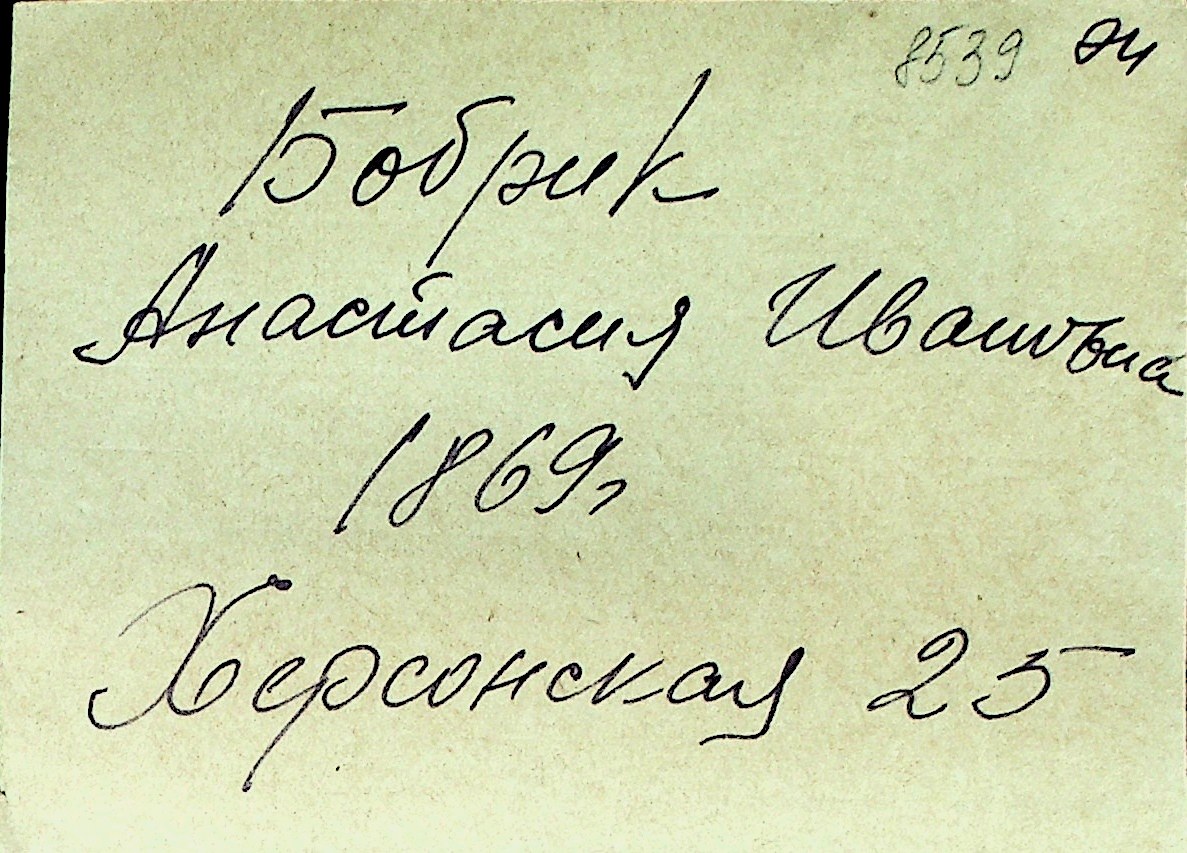 8539
Бобрик
Анастасия Ивановна
1869г
Херсонская 25